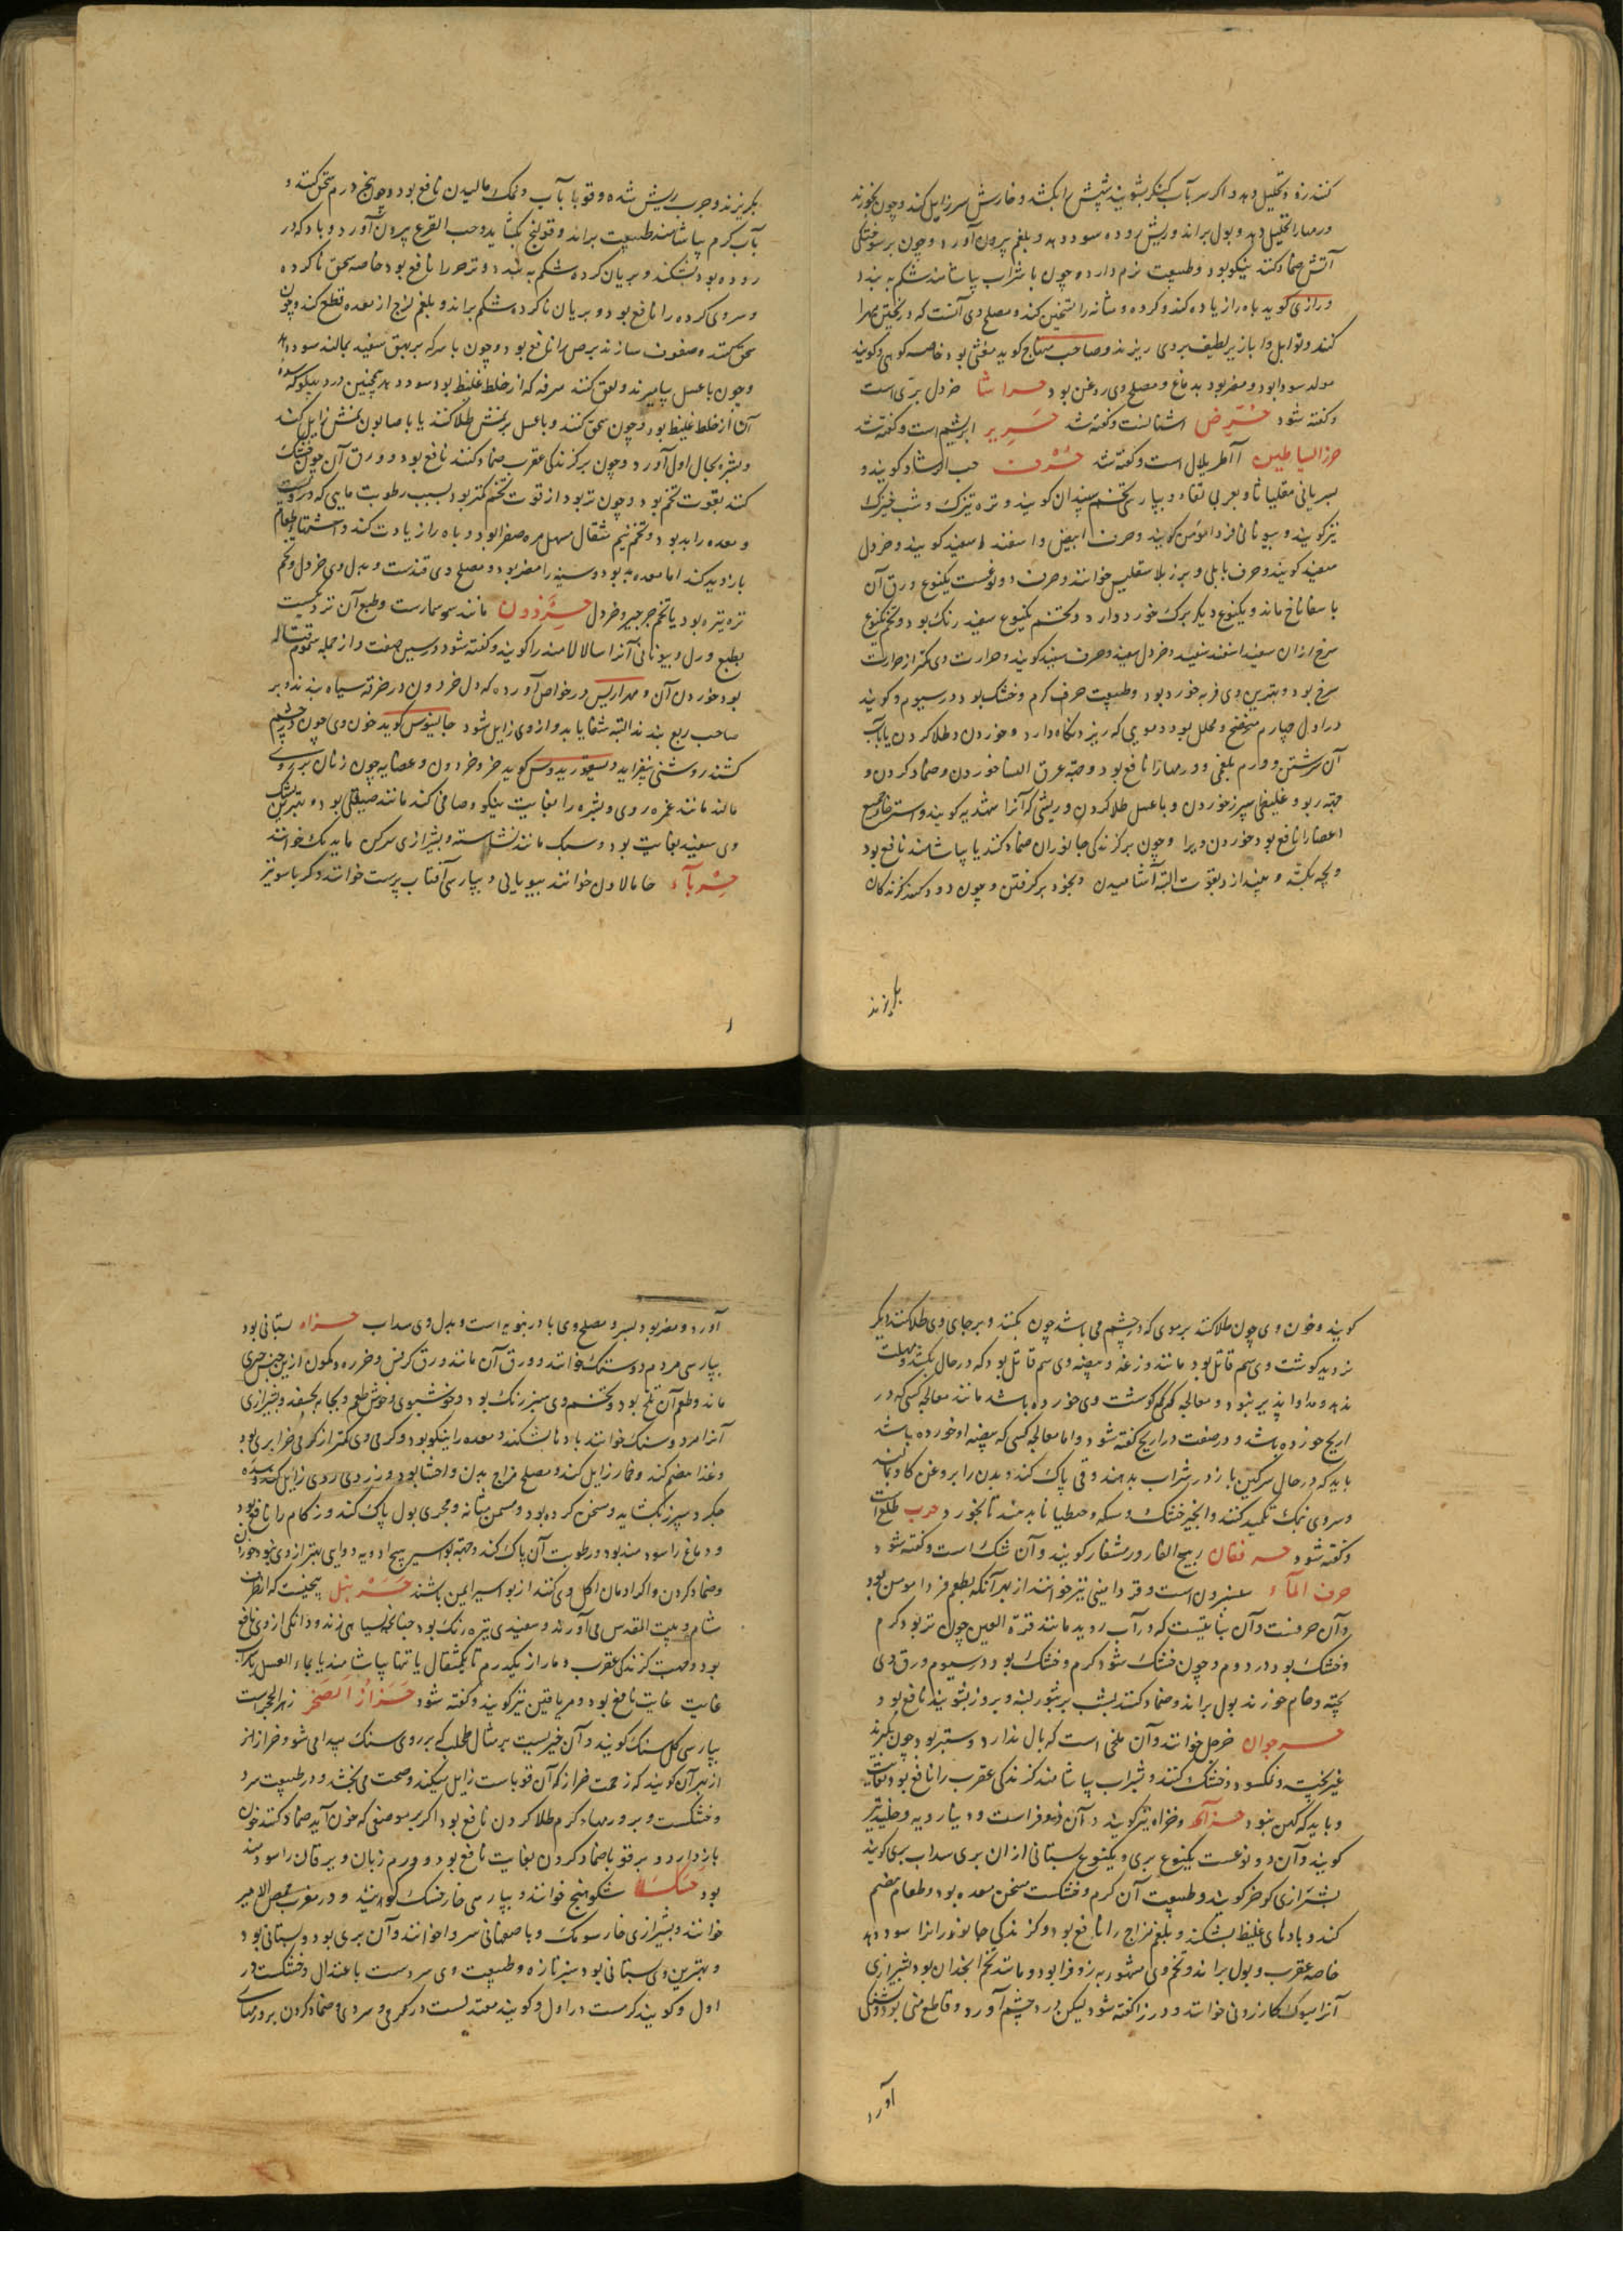 کنند رزه و تحلیل دهد و اگر سر بآب کنکر بشویند شپش را بکشد و خارش سر زایل کند و چون بخورند
ورمها را تحلیل دهد و بول براند و ریش روده سود دهد و بلغم بیرون آورد و چون بر سوختگی
آتش ضماد کنند نیکو بود و طبیعت نرم دارد و چون با شراب بیاشامند شکم به بندد
و رازی گوید باه را زیاده کند و گرده و مثانه را تسخین کند و مصلح وی آنست که در پختن مهرا
کنند و توابل و ابازیر لطیف بر وی ریزند و صاحب منهاج گوید مغثی بود خاصه کوهی و گویند
مولد سودا بود و مضر بود بدماغ و مصلح وی روغن بود حراشا خردل بری است
و گفته شود حرض اشنانست و گفته شد حریر ابریشم است و گفته شد
حرز الشیاطین آاطریلال است و گفته شد حرف حب الرشاد گویند و
بسریانی مقلیاثا و بعربی ثفاء و بپارسی تخم سپندان گویند و تره تیزک و شب خیزک
نیز گویند و بیونانی فردامومن گویند و حرف ابیض و اسفند سفید گویند و خردل
سفید گویند و حرف بابلی و بر زبلاسقلیس خوانند و حرف دو نوعست یکنوع ورق آن
باسفاناخ ماند و یکنوع دیگر برگ خورد دارد و تخم یکنوع سفید رنگ بود و تخم یکنوع
سرخ ازان سفید اسفند سفید و خردل سفید و حرف سفید گویند و حرارت وی کمتر از حرارت
سرخ بود و بهترین وی فربه خورد بود و طبیعت حرف گرم و خشک بود در سیوم و گویند
در اول چهارم منضج و محلل بود و مویی که ریزد نگاه دارد و خوردن و طلا کردن یا بآب
آن سرشتن و ورم بلغمی و ورمها را نافع بود و جهة عرق النسا خوردن و ضماد کردن و
جهة ربو و غلیظی سپرز خوردن و با عسل طلا کردن و ریشی که آنرا شهدیه گویند و استرخاء جمیع
اعضا را نافع بود خوردن ویرا و چون بر گزندگی جانوران ضماد کنند یا بیاشامند نافع بود
و بچه بکشد و بیندازد بقوت البته آشامیدن و بخود برگرفتن و چون دود کنند گزندگان
بگریزند
بگریزند و جرب ریش شده و قوبا بآب و نمک مالیدن نافع بود و چون پنج درم سحق کنند و
بآب گرم بیاشامند طبیعت براند و قولنج بگشاید و حب القرع بیرون آورد و بادکه در
روده بود بشکند و بریان کرده شکم به بندد و تزحر را نافع بود خاصه سحق ناکرده
و سردی گرده را نافع بود و بریان ناکرده شکم براند و بلغم لزج از معده قطع کند و چون
سحق کنند و سفوف سازند برص را نافع بود و چون با سرکه بر بهق سفید بمالند سود دهد
و چون با عسل بیامیزند و لعق کنند سرفه که از خلط غلیظ بود سود دهد همچنین درد پهلو که سده
آن از خلط غلیظ بود و چون سحق کنند و با عسل بر نمش طلا کنند یا با صابون نمش زایل کند
و بشره بحال اول آورد و چون بر گزندگی عقرب ضماد کنند نافع بود و ورق آن چون خشک
کنند بقوت تخم بود و چون تر بود از قوت تخم کمتر بود بسبب رطوبت مایی که دروست
و معده را بد بود و تخم نیم مثقال مسهل مره صفرا بود و باه را زیادت کند و اشتهای طعام
بازدید کند اما معده بد بود و سینه را مضر بود و مصلح وی قندست و بدل وی خردل و تخم
تره تیزه بود یا تخم جرجیر و خردل حرذون مانند سوسمارست و طبع آن نزدیکست
بطبع ورل و بیونانی آنرا سالالامندرا گویند و گفته شود در سین صفت و از جمله سموم قتاله
بود خوردن آن و مهراریس در خواص آورده که دل حردون در خرقه سیاه بندند و بر
صاحب ربع بندند البته شفا یابد و ازوی زایل شود جالینوس گوید خون وی چون در چشم
کشند روشنی بیفزاید و دیسقوریدوس گوید خرو حردون و عصایه چون زنان بر روی
مالند مانند غمزه روی و بشره را بغایت نیکو و صافی کند مانند صیقلی بود و بهترین بشک
وی سفید بغایت بود و سبک مانند نشاسته و بشیرازی سرکین مابدیک خوانند
حرباء خامالاون خوانند بیونانی و بپارسی آفتاب پرست خوانند و کرباسو نیز
گویند و خون وی چون طلا کنند بر موی که در چشم می باشد چون بکنند و بر جای وی طلا کنند دیگر
نروید گوشت وی سم قاتل بود مانند وزغه و بیضه وی سم قاتل بود که در حال بکشد و مهلت
ندهد و مداوا پذیر نبود و معالجه کسی که گوشت وی خورده باشد مانند معالجه کسی که در
اریح خورده باشد و در صفت دراریح گفته شود و اما معالجه کسی که بیضه او خورده باشد
باید که در حال سرگین باز در شراب بدهند و قی پاک کند و بدن را بروغن گاو بمالند
و سر وی نمک تکمید کنند و انجیر خشک و مسکه و جنطیانا بدهند تا بخورد حرب طلع است
و گفته شود حرفقان ریح الفار و رمشفار گویند و آن شک است و گفته شود
حرف الماء سنبرون است و قردامینی نیز خوانند از بهر آنکه بطعم قردامومن بود
و آن حرفست و آن نباتیست که در آب روید مانند قرة العین چون تر بود گرم
و خشک بود در دوم و چون خشک شود گرم و خشک بود در سیوم ورق وی
پخته و خام خورند بول براند و ضماد کنند بشب بر بثور لبنه و بروز بشویند نافع بود
حرجوان خرجل خوانند و آن ملخی است که بال ندارد و ستبر بود چون بگیرند
غیر پخته و نمکسود و خشک کنند و بشراب بیاشامند گزندگی عقرب را نافع بود بغایت
و باید که کهن نبود حزآ و خزاه نیز گویند و آن زوفرا است و دینارویه و جلندبر
گویند و آن دو نوعست یکنوع بری و یکنوع بستانی ازان بری سداب بری گویند
بشیرازی کوخر گویند و طبیعت آن گرم و خشکست مسخن معده بود و طعام هضم
کند و بادهای غلیظ بشکند و بلغم مزاج را نافع بود و گزندگی جانورانرا سود دهد
خاصه عقرب و بول براند و تخم وی مشهور به زوفرا بود و مانند تخم انجدان بود بشیرازی
آنرا سوک کازرونی خوانند و در زا گفته شود لیکن درد چشم آورد و قاطع منی بود و تشنگی
آورد
آورد و مضر بود بسر و مصلح وی بادرنبویه است و بدل وی سداب حزاء بستانی بود
بپارسی مردم دوستک خوانند و ورق آن مانند ورق کرفس و خرده و کمون ازین جنس جزی
ماند و طعم آن تلخ بود و تخم وی سبز رنگ بود و خوشبوی و خوش طعم و بجانه بجسفد و بشیرازی
آنرا مردوسنک خوانند بادها بشکند و معده را نیکو بود و گرمی وی کمتر از گرمی حزا بری بود
و غذا هضم کند و خمار زایل کند و مصلح مزاج بدن و احشا بود و زردی روی زایل کند و سده
جگر و سپرز بگشاید و مسخن گرده بود و مسمن مثانه و مجری بول پاک کند و زکام را نافع بود
و دماغ را سودمند بود و رطوبت آن پاک کند و جهة بواسیر هیچ ادویه و دوایی بهتر ازوی نبود خوردن
و ضماد کردن و اگر ادمان اکل وی کنند از بواسیر ایمن باشند حزنبل بیخیست که از طرف
شام و بیت المقدس می آورند و سفیدی تیره رنگ بود چنانکه بسیاهی زند و دانگی ازوی نافع
بود جهت گزندگی عقرب و مار از یکدرم تا یکمثقال یا تنها بیاشامند یا بماء العسل یا شراب
غایت غایت نافع بود و مریافین نیز گویند و گفته شود حزاز الصخر زهر الحجرست
بپارسی گل سنگ گویند و آن خیریست بر مثال طحلب که بر روی سنگ پیدا می شود و حزاز از
از بهر آن گویند که زحمت حزاز که آن قوباست زایل میکند و صحت می بخشد و در طبیعت سرد
و خشکست و بر ورمهاء گرم طلا کردن نافع بود اگر بر موضعی که خون آید ضماد کنند خون
باز دارد و بر قوبا ضماد کردن بغایت نافع بود و ورم زبان و یرقان را سودمند
بود حسک شکوهنج خوانند و بپارسی خارخسک گویند و در مغرب حمص الامیر
خوانند و بشیرازی خارسومک و باصفهانی سروا خوانند و آن بری بود و بستانی بود
و بهترین وی بستانی بود سبز تازه و طبیعت وی سردست باعتدال و خشکست در
اول و گویند گرمست در اول و گویند معتدلست در گرمی و سردی و ضماد کردن بر ورمهای